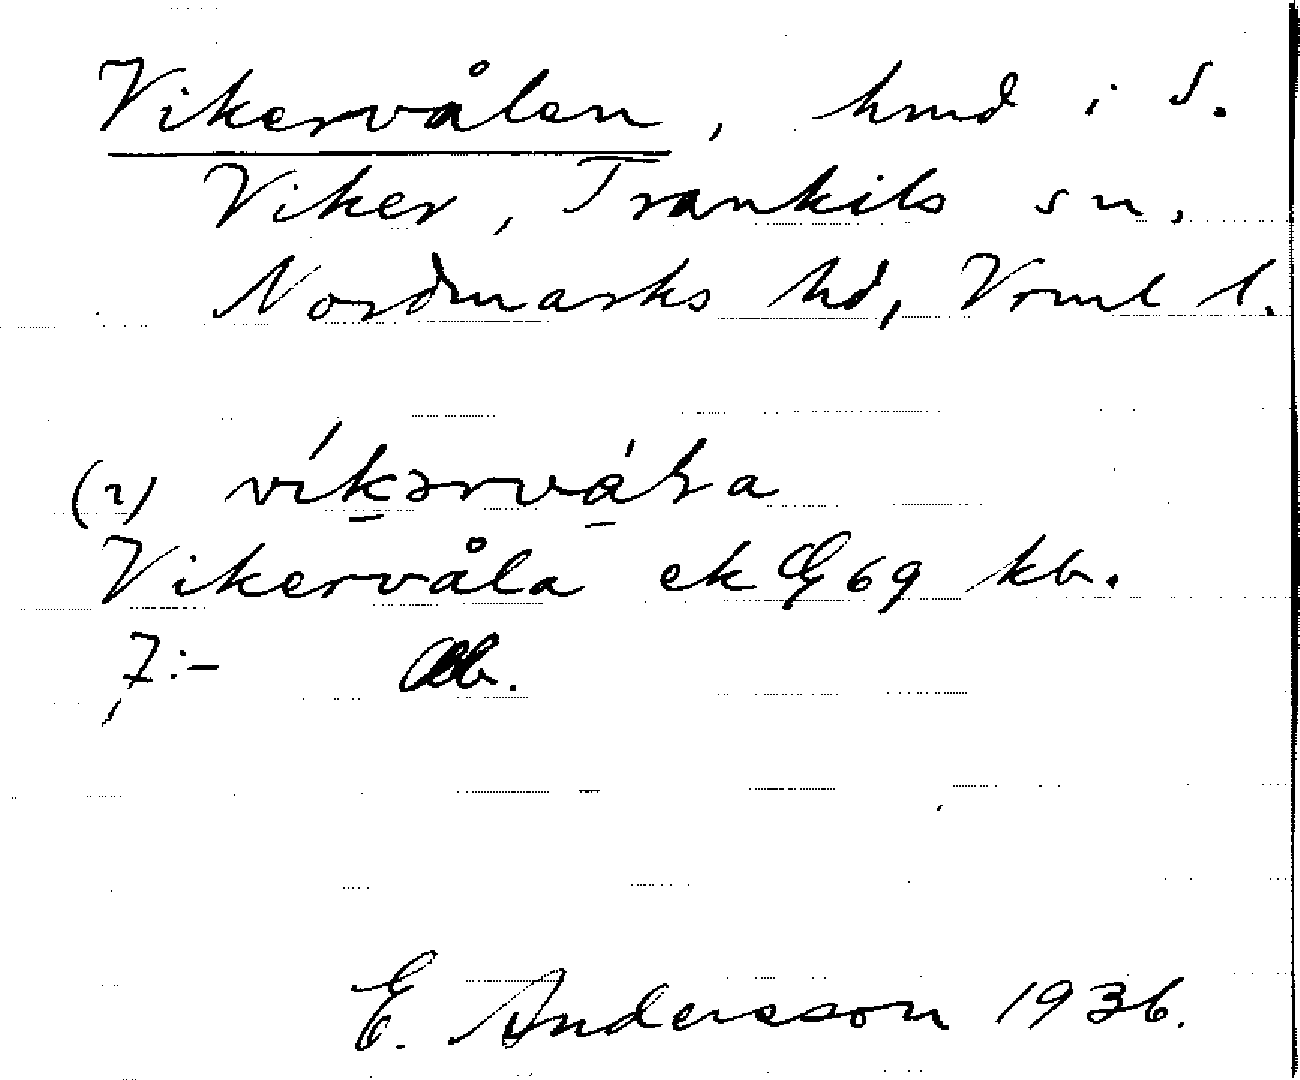 Vikervålen, hmd i S.
Viker, Trankils sn.
Nordmarks hd, Vrml l.
(2) víkərvåɽa
Vikervåla ek G 69 kb.
7:-
E. Andersson 1936.